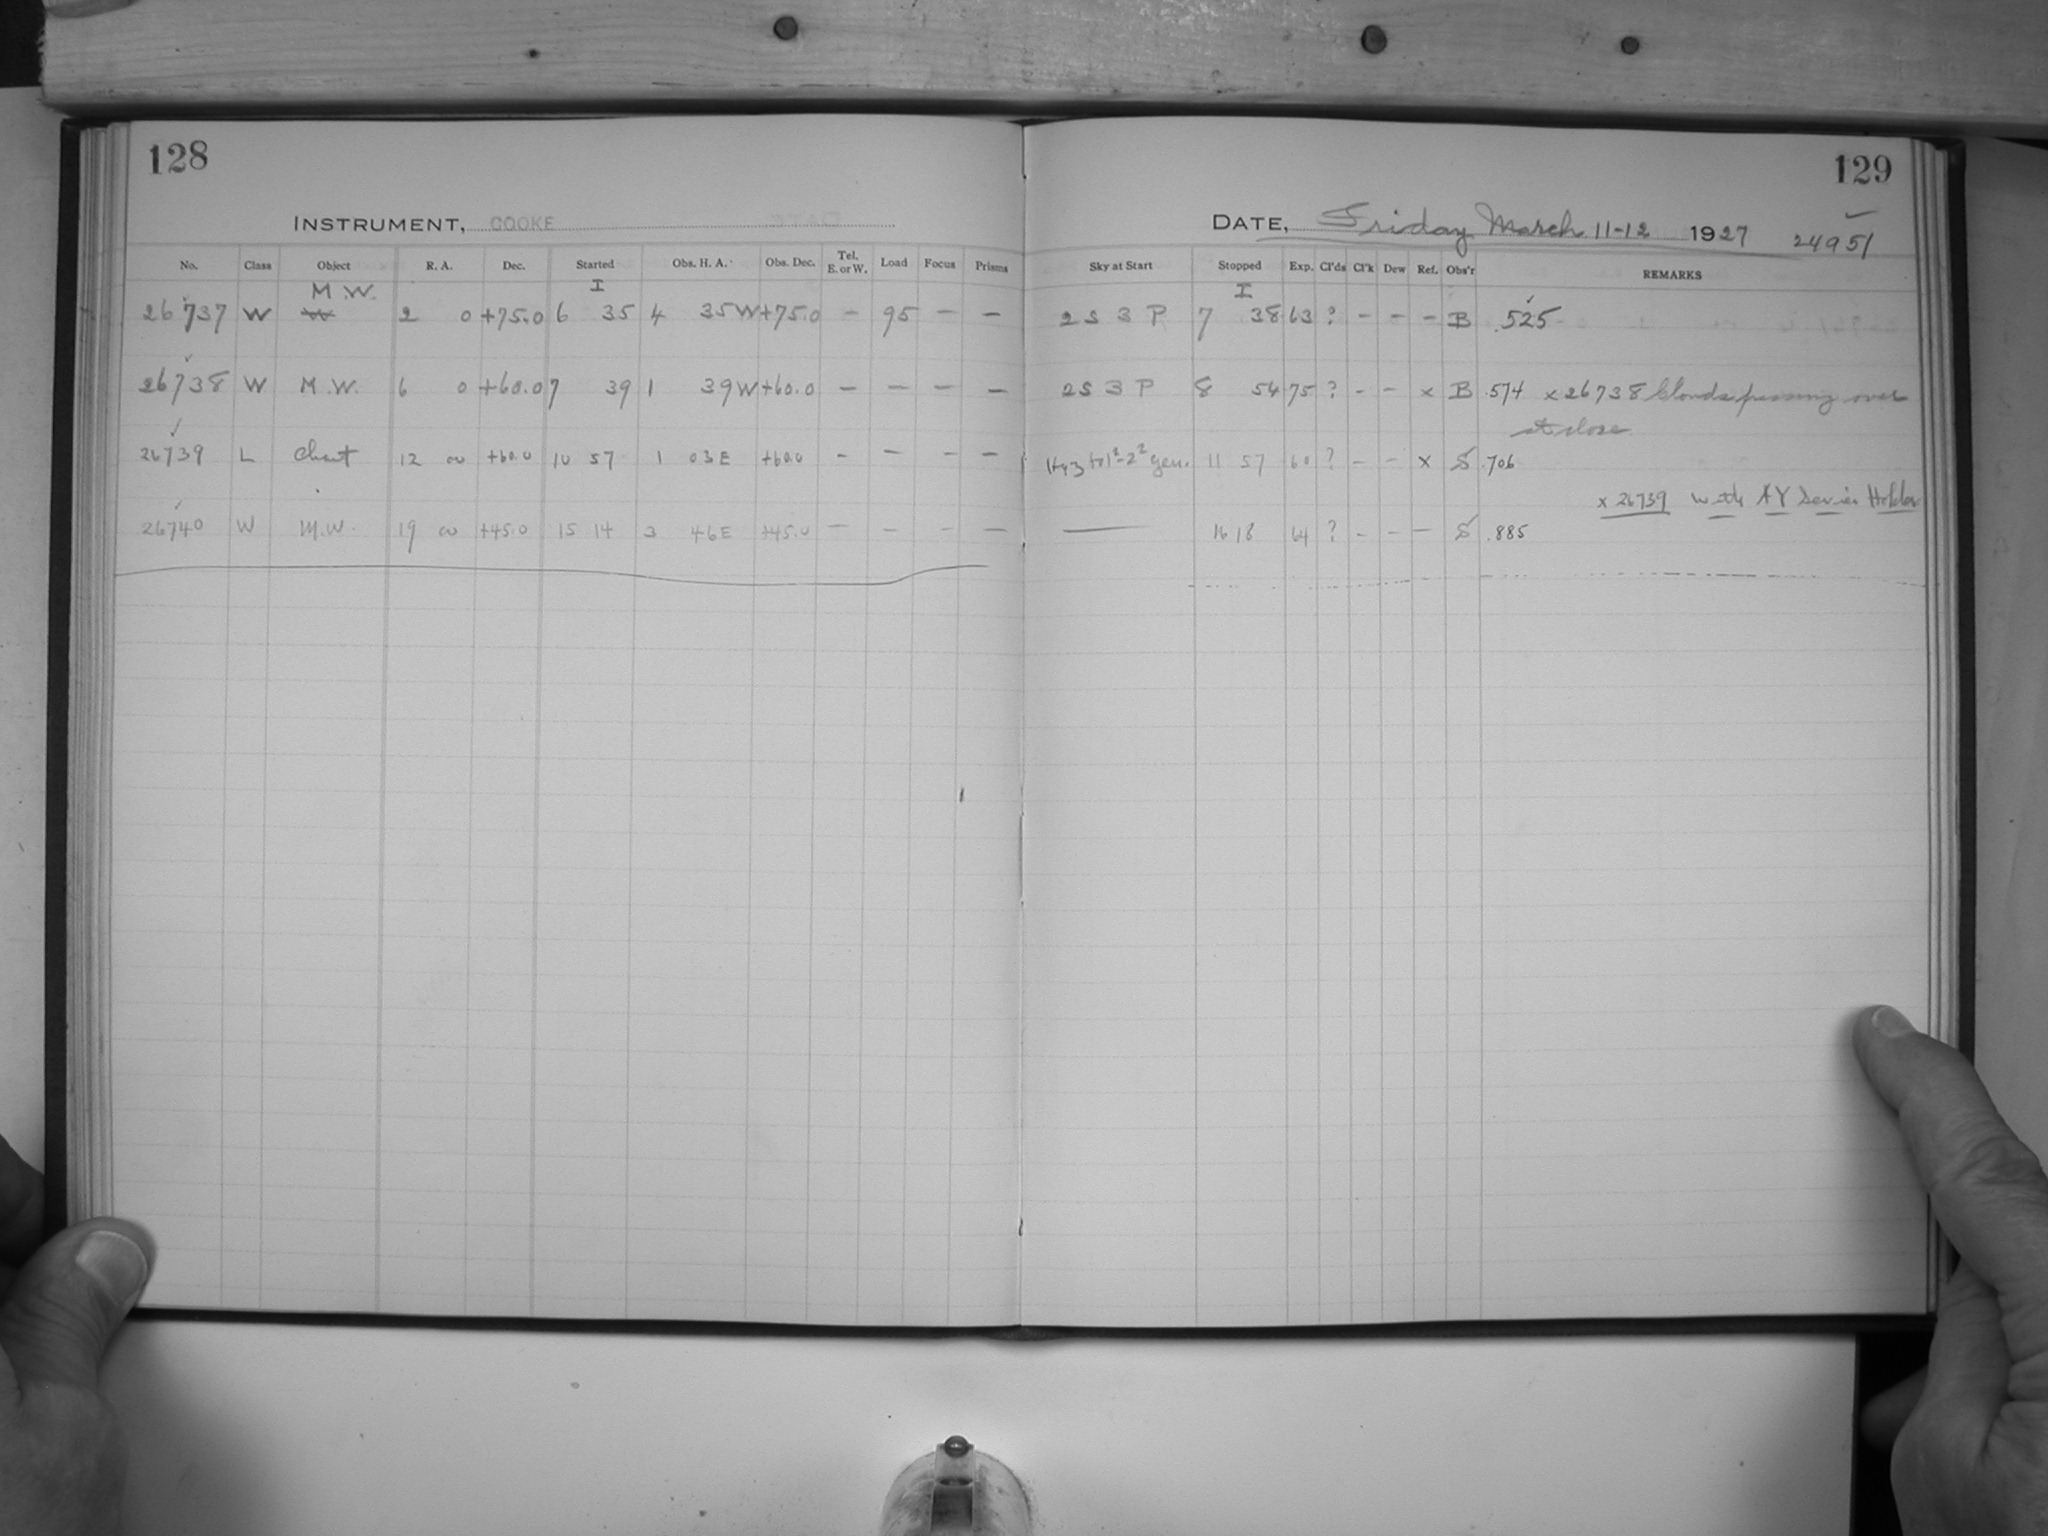 128
129
INSTRUMENT, COOKE
DATE, Friday March 11-12 1927 24951
No. Class Object R. A. Dec. Started Obs. H. A. Obs. Dec. Tel. E. or W. Load Focus Prisms Sky at Start Stopped Exp. Cl'ds Cl'k Dew Ref. Obs'r REMARKS
M.W. I I
26737 W W 2 0 +75.0 6 35 4 35W +75.0 – 95 – – 2 S 3 P 7 38 63 ? – – – B .525
26738 W M.W. 6 0 +60.0 7 39 1 39W +60.0 – – – – 2 S 3 P 8 54 75 ? – – x B .574 x 26738 Clouds passing over
at close
26739 L Chart 12 00 +60.0 10 57 1 03E +60.0 – – – – gen. 11 57 60 ? – – x S .706
x 26739 with AY Series Holder
26740 W M.W. 19 00 +45.0 15 14 3 46E +45.0 – – – – — 16 18 64 ? – – – S .885